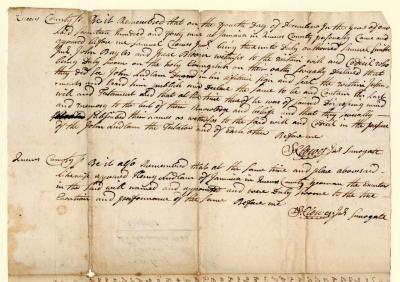 Queens County ss Be it Remembered that on the fourth Day of December In the year of our
Lord Seventeen Hundred and forty nine at Jamaica in Queens County personally Came and
appeared before me Samuel Clowes Junr. being thereunto Duly authorized
John Bayles and Witnesses to the within will and Codicil who
being Duly sworn on the holy Evangelists
they Did see John Ludlam Deceased in his lifetime sign and seal the within
and heard him publish and Declare the same to be and Contain his last
will and Testament and that at the time thereof he was of sound Disposing mind
and memory to the best of their knowledge and belief and that they severally
Subscribed their names as witnesses to the said will and Codicil in the presence
of the John Ludlam the Testator and of Each other Before me
S Clowes Junr Surrogate
Queens County ss Be it also Remembered that at the same time and place abovesaid
Likewise appeared Henry Ludlam of Jamaica in Queens County yeoman the Executor
in the said will named and appointed and were Duly sworne to the true
Execution and performance of the same Before me
S Clowes Junr Surrogate